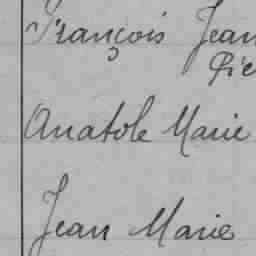 François Jean
Pie
Anatole Marie
Jean Marie